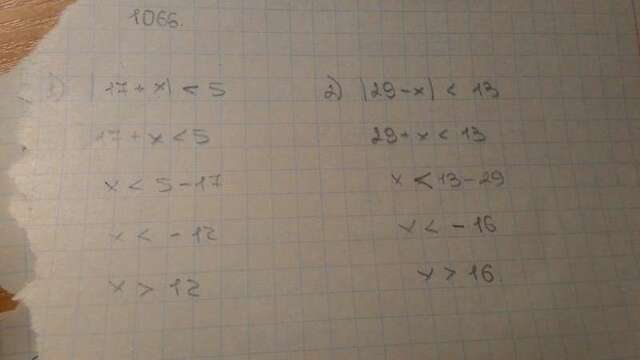 1066.
1) |17 + x| < 5
17 + x < 5
x < 5 - 17
x < - 12
x > 12
2) |29 - x| < 13
29 + x < 13
x < 13 - 29
x < - 16
x > 16.